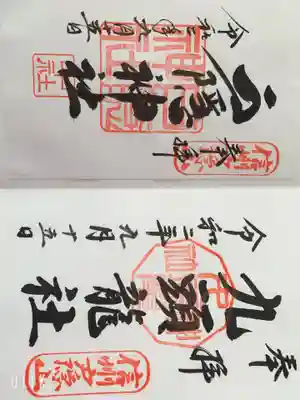 奉拝
信州戸隠山
戸隠神社
令和二年九月十五日
奉拝
信州戸隠山
九頭龍社
令和二年九月十五日